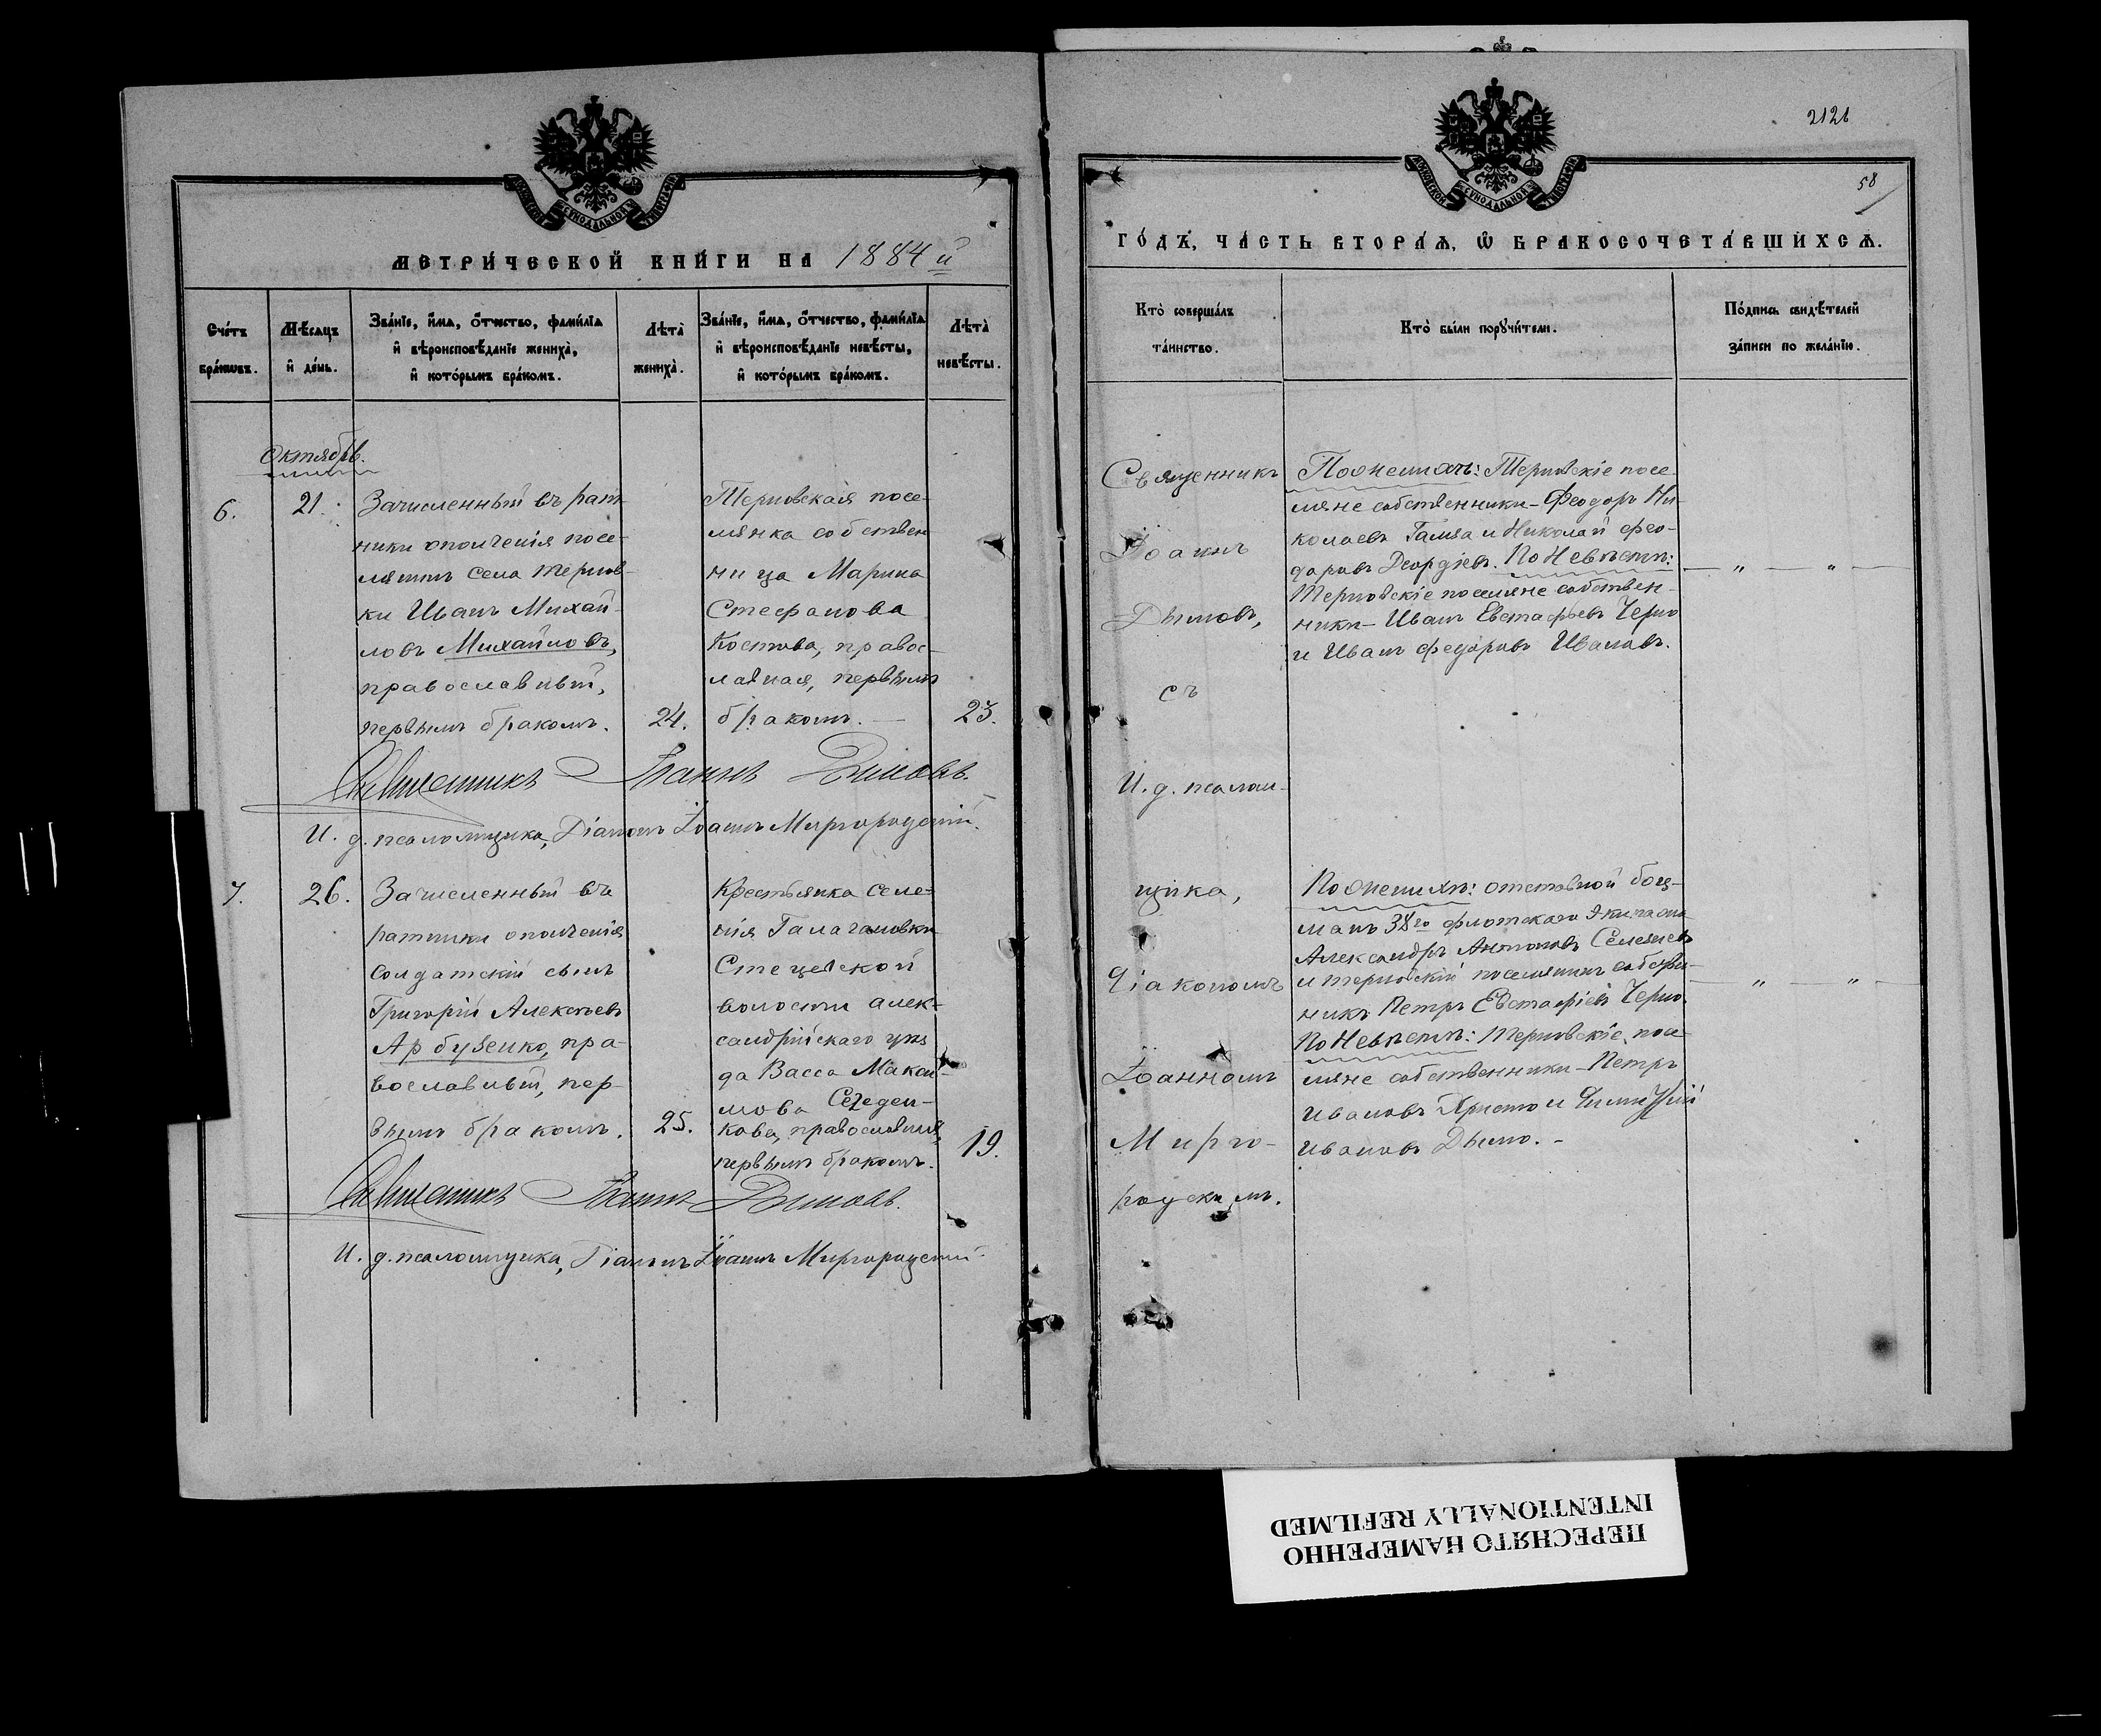 МЕТРИ́ЧЕСКОЙ КНИ́ГИ НА 1884 й
Сче́тъ бра́ковъ.
Мѣ́сяцъ и де́нь.
Зва́нїе, и́мя, ѻ́тчество, фами́лїя и вѣроисповѣ́данїе жениха̀, и кото́рымъ бра́комъ.
Лѣта̀ жениха̀.
Зва́нїе, и́мя, ѻ́тчество, фами́лїя и вѣроисповѣ́данїе невѣ́сты, и кото́рымъ бра́комъ.
Лѣта̀ невѣ́сты.
Октябрь.
6.
21.
Зачисленный въ рат-
ники ополченія посе-
лянинъ села Тернов-
ки Иванъ Михай-
ловъ Михайловъ,
православный,
первымъ бракомъ.
24.
Терновская посе-
лянка собствен
ница Марина
Стефанова
Костова, правос-
лавная, первымъ
бракомъ. —
23.
Священникъ Іоаннъ Дымовъ.
И. д. псаломщика, Діаконъ Іоаннъ Миргородскій.
7.
26.
Зачисленный въ
ратники ополченія
солдатскій сынъ
Григорій Алексѣевъ
Арбузенко, пра-
вославный, пер-
вымъ бракомъ.
25.
Крестьянка селе-
нія Галагановки
Стецевской
волости Алек-
сандрійскаго уѣз
да Васса Макси-
мова Селеден-
кова, православная,
первымъ бракомъ.
19.
Священникъ Іоаннъ Дымовъ.
И. д. псаломщика, Діаконъ Іоаннъ Миргородскій.
2121
58
ГО́ДЪ, ЧА́СТЬ ВТОРА́Я, Ѡ БРАКОСОЧЕТА́ВШИХСЯ.
Кто̀ соверша́лъ та́инство.
Кто̀ бы́ли поручи́тели.
По́дпись свидѣ́телей за́писи по жела́нїю.
Священникъ
Іоаннъ
Дымовъ,
съ
И. д. псалом-
щика,
Діакономъ
Іоанномъ
Мирго-
родскимъ.
По женихѣ: Терновскіе посе-
ляне собственники - Феодоръ Ни-
колаевъ Гамза и Николай Фео-
доровъ Георгіевъ. По Невѣстѣ:
Терновскіе поселяне собствен-
ники - Иванъ Евстафьевъ Черно
и Иванъ Федоровъ Ивановъ.
— " — " —
По женихѣ: отставной боц-
манъ 38го флотскаго экипажа
Александръ Антоновъ Селезневъ
и терновскій поселянинъ собствен-
никъ Петръ Евстафіевъ Черно.
По Невѣстѣ: Терновскіе посе-
ляне собственники - Петръ
Ивановъ Христо и
Ивановъ Дымо. -
— " — " —
ПЕРЕСНЯТО НАМЕРЕННО
INTENTIONALLY REFILMED